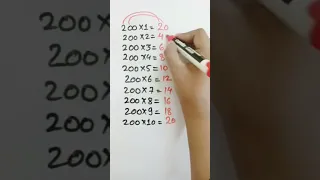 200×1=20
200×2=4
200×3=6
200×4=8
200×5=10
200×6=12
200×7=14
200×8=16
200×9=18
200×10=20